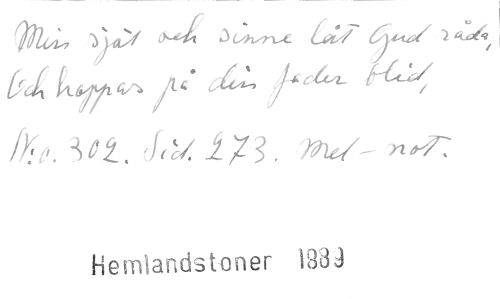 Min själ och sinne låt Gud råda,
Och hoppas på din fader blid,
N:o. 302. Sid. 273. Mel-not.
Hemlandstoner 1889